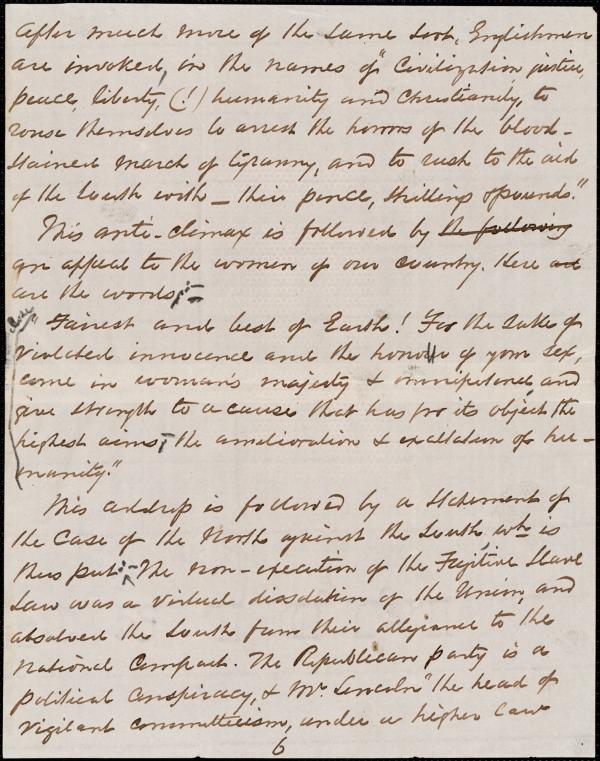 After much more of the same sort, Englishmen
are invoked, in the names of "Civilization justice,
peace, liberty, (!) humanity and Christianity, to
rouse themselves to arrest the horrors of the blood-
stained march of tyranny, and to rush to the aid
of the South with — their pence, shillings & pounds."
This anti-climax is followed by the following
an appeal to the women of our country. Here are
are the words:—
"Fairest and best of Earth! For the sake of
violated innocence and the honour of your sex,
come in woman's majesty & omnipotence, and
give strength to a cause that has for its object the
highest aims, the amelioration & exaltation of hu-
manity."
This is followed by a Statement of
the Case of the North against the South, wh is
thus put:— The non-execution of the Fugitive Slave
Law was a virtual dissolution of the Union, and
absolved the South from their allegiance to the
National Compact. The Republican party is a
political Conspiracy, & Mr. Lincoln "the head of
vigilant committeeism, under a higher law
6